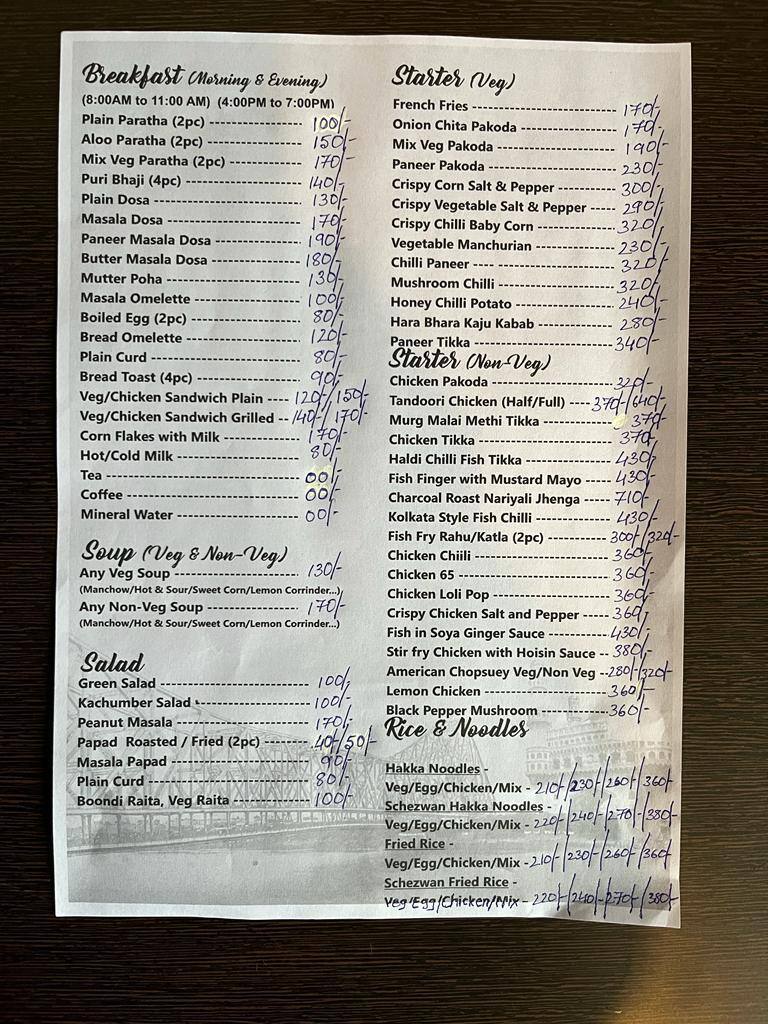 Breakfast (Morning & Evening)
(8:00AM to 11:00 AM) (4:00PM to 7:00PM)
Plain Paratha (2pc) ---------------- 100/-
Aloo Paratha (2pc) ---------------- 150/-
Mix Veg Paratha (2pc) ------------ 170/-
Puri Bhaji (4pc) -------------------- 140/-
Plain Dosa -------------------------- 130/-
Masala Dosa ------------------------ 170/-
Paneer Masala Dosa --------------- 190/-
Butter Masala Dosa ---------------- 180/-
Mutter Poha ------------------------ 130/-
Masala Omelette ------------------- 100/-
Boiled Egg (2pc) -------------------- 80/-
Bread Omelette -------------------- 120/-
Plain Curd --------------------------- 80/-
Bread Toast (4pc) ------------------ 90/-
Veg/Chicken Sandwich Plain ----- 120/- 150/-
Veg/Chicken Sandwich Grilled -- 140/- 170/-
Corn Flakes with Milk ------------- 170/-
Hot/Cold Milk ---------------------- 80/-
Tea ----------------------------------- 00/-
Coffee ------------------------------- 00/-
Mineral Water ---------------------- 00/-
Soup (Veg & Non-Veg)
Any Veg Soup --------------------- 130/-
(Manchow/Hot & Sour/Sweet Corn/Lemon Corrinder...)
Any Non-Veg Soup --------------- 170/-
(Manchow/Hot & Sour/Sweet Corn/Lemon Corrinder...)
Salad
Green Salad ------------------------ 100/-
Kachumber Salad ----------------- 100/-
Peanut Masala --------------------- 170/-
Papad Roasted / Fried (2pc) ------ 40/- 50/-
Masala Papad ---------------------- 90/-
Plain Curd -------------------------- 80/-
Boondi Raita, Veg Raita ----------- 100/-
Starter (Veg)
French Fries ------------------------- 170/-
Onion Chita Pakoda --------------- 170/-
Mix Veg Pakoda -------------------- 190/-
Paneer Pakoda --------------------- 230/-
Crispy Corn Salt & Pepper -------- 300/-
Crispy Vegetable Salt & Pepper --- 290/-
Crispy Chilli Baby Corn ------------ 320/-
Vegetable Manchurian ------------ 230/-
Chilli Paneer ---- ------------------- 320/-
Mushroom Chilli -------------------- 320/-
Honey Chilli Potato ---------------- 240/-
Hara Bhara Kaju Kabab ------------ 280/-
Paneer Tikka ------------------------ 340/-
Starter (Non-Veg)
Chicken Pakoda --------------------- 320/-
Tandoori Chicken (Half/Full) ---- 370/-/640/-
Murg Malai Methi Tikka ----------- 370/-
Chicken Tikka ----------------------- 370/-
Haldi Chilli Fish Tikka -------------- 430/-
Fish Finger with Mustard Mayo --- 430/-
Charcoal Roast Nariyali Jhenga ----- 710/-
Kolkata Style Fish Chilli ------------ 430/-
Fish Fry Rahu/Katla (2pc) --------- 300/-/320/-
Chicken Chiili ----------------------- 360/-
Chicken 65 -------------------------- 360/-
Chicken Loli Pop -------------------- 360/-
Crispy Chicken Salt and Pepper --- 360/-
Fish in Soya Ginger Sauce --------- 430/-
Stir fry Chicken with Hoisin Sauce -- 380/-
American Chopsuey Veg/Non Veg --280/-/320/-
Lemon Chicken --------------------- 360/-
Black Pepper Mushroom ---------- 360/-
Rice & Noodles
Hakka Noodles -
Veg/Egg/Chicken/Mix - 210/-/230/-/260/-/360/-
Schezwan Hakka Noodles -
Veg/Egg/Chicken/Mix - 220/-/240/-/270/-/380/-
Fried Rice -
Veg/Egg/Chicken/Mix -210/-/230/-/260/-/360/-
Schezwan Fried Rice -
Veg/Egg/Chicken/Mix - 220/-/240/-/270/-/380/-